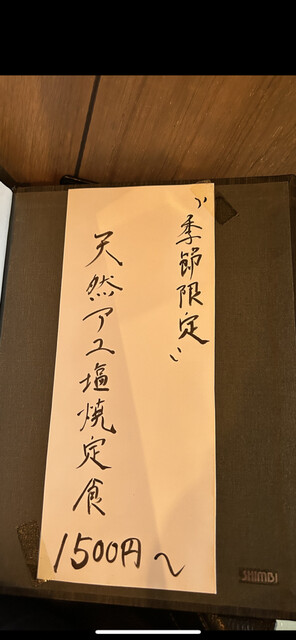 〝季節限定〟
天然アユ塩焼定食
1500円〜
SHIMBI